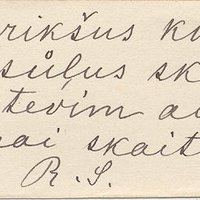 rikšus ku
sūļus sk
tevim au
nai skait
R. S.